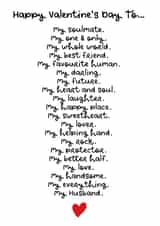 Happy Valentine's Day To...
My soulmate.
My one & only.
My whole world.
My best friend.
My favourite human.
My darling.
My future.
My heart and soul.
My laughter.
My happy place.
My sweetheart.
My lover.
My helping hand.
My rock.
My protector.
My better half.
My love.
My handsome.
My everything.
My Husband.